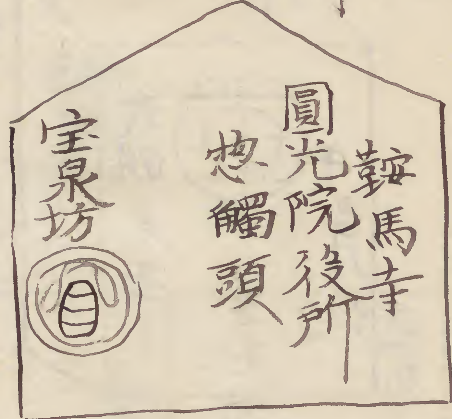 鞍馬寺
圓光院役所
惣觸頭
宝泉坊